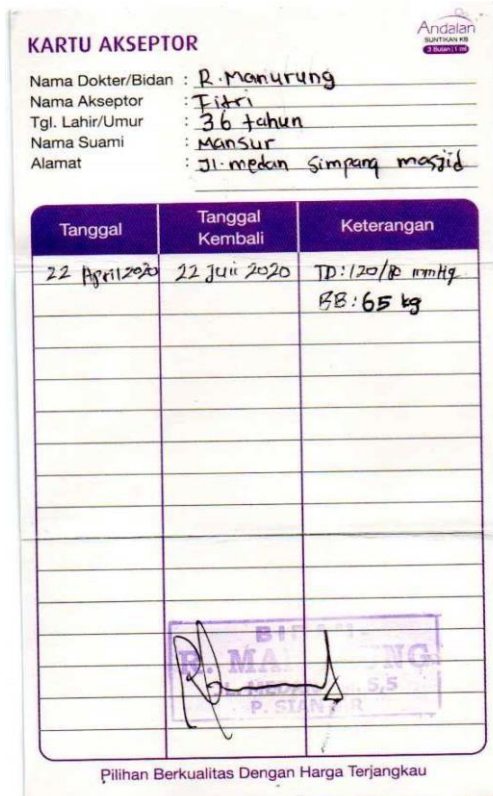 Andalan
SUNTIKAN KB
3 Bulan | 1 ml
KARTU AKSEPTOR
Nama Dokter/Bidan : R. Manurung
Nama Akseptor : Fitri
Tgl. Lahir/Umur : 36 tahun
Nama Suami : Mansur
Alamat : Jl. medan simpang masjid
Tanggal Tanggal Kembali Keterangan
22 April 2020 22 Juli 2020 TD: 120/80 mmHg
BB: 65 kg
R. MA UNG
P. SIAN R
Pilihan Berkualitas Dengan Harga Terjangkau